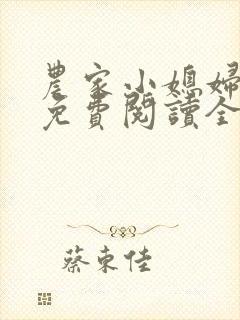 農家小媳婦
免費閱讀全
蔡東佳